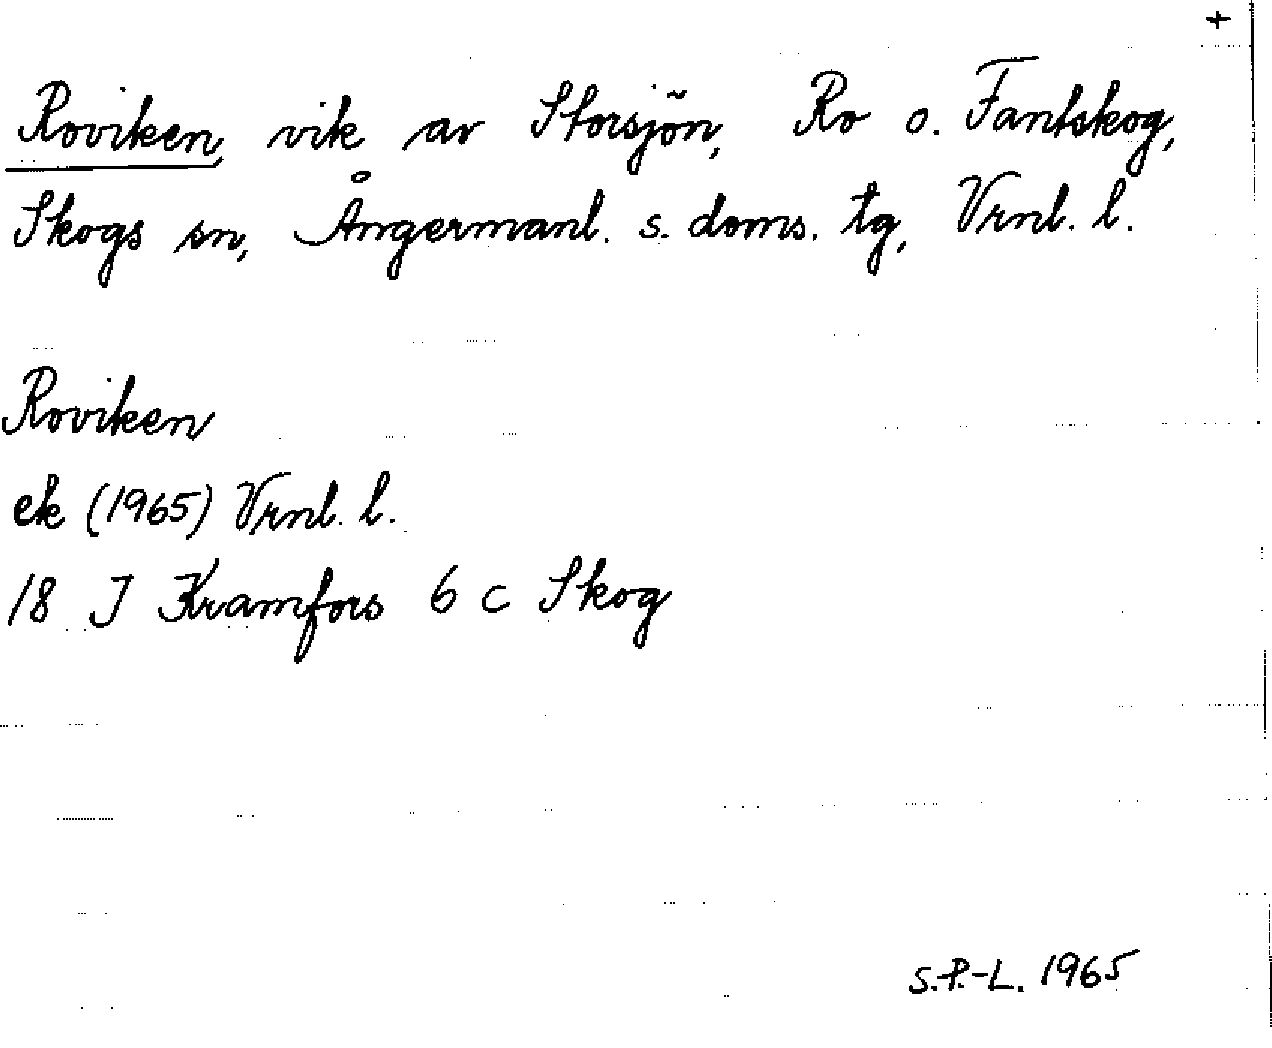 +
Roviken, vik av Storsjön, Ro o. Fantskog,
Skogs sn, Ångermanl. s. doms. tg, Vrnl. l.
Roviken
ek (1965) Vrnl. l.
18 J Kramfors 6 c Skog
S.P.-L. 1965